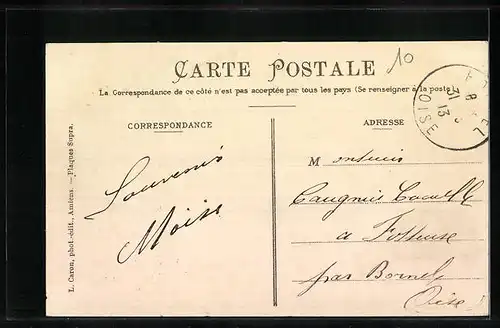 10
CARTE POSTALE
La Correspondance de ce côté n'est pas acceptée par tous les pays (Se renseigner à la poste)
31 8 13
OISE
CORRESPONDANCE
ADRESSE
Souvenir
Moïse
L. Caron, phot.-édit., Amiens. — Plaques Sopra.
Monsieur
a Fosseuse
par Bornel
Oise